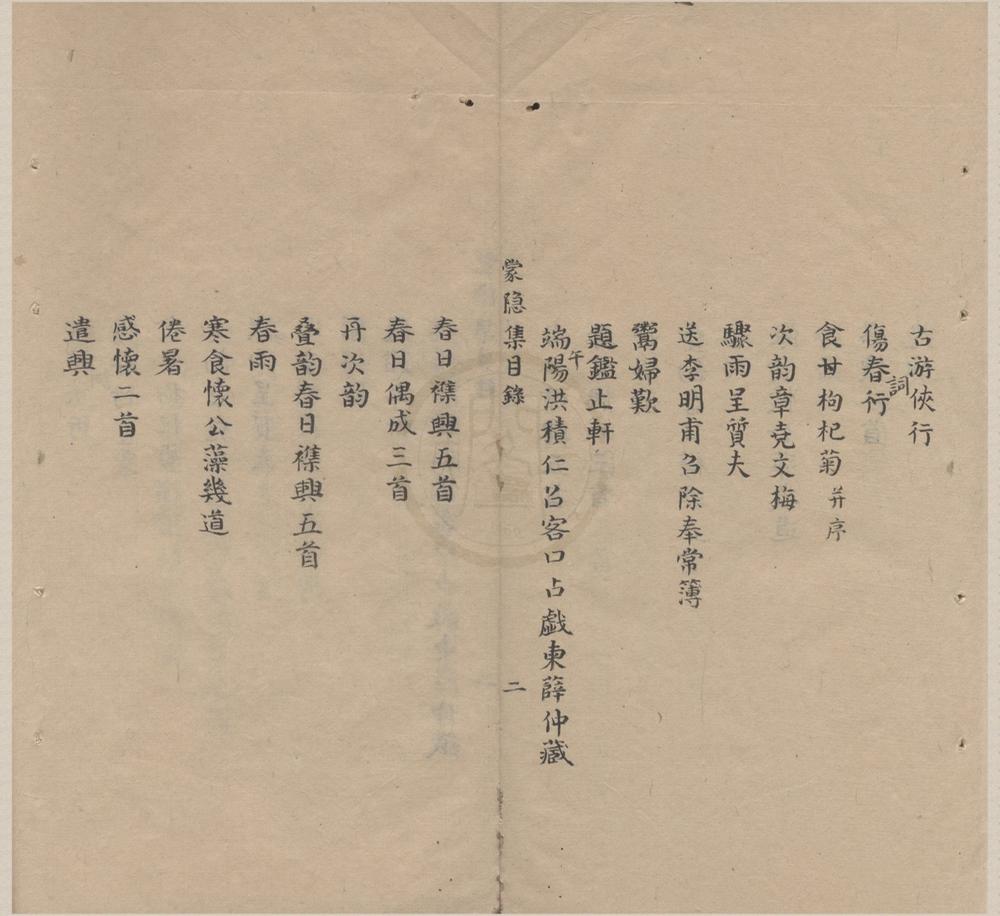 古游俠行
傷春行
詞
食甘枸杞菊 并序
次韵章尭文梅
驟雨呈質夫
送李明甫召除奉常簿
鬻婦歎
題鑑止軒
端陽洪積仁召客口占戯柬薛仲藏
午
蒙隐集目錄 二
春日襍興五首
春日偶成三首
再次韵
叠韵春日襍興五首
春雨
寒食懷公藻幾道
倦暑
感懷二首
遣興